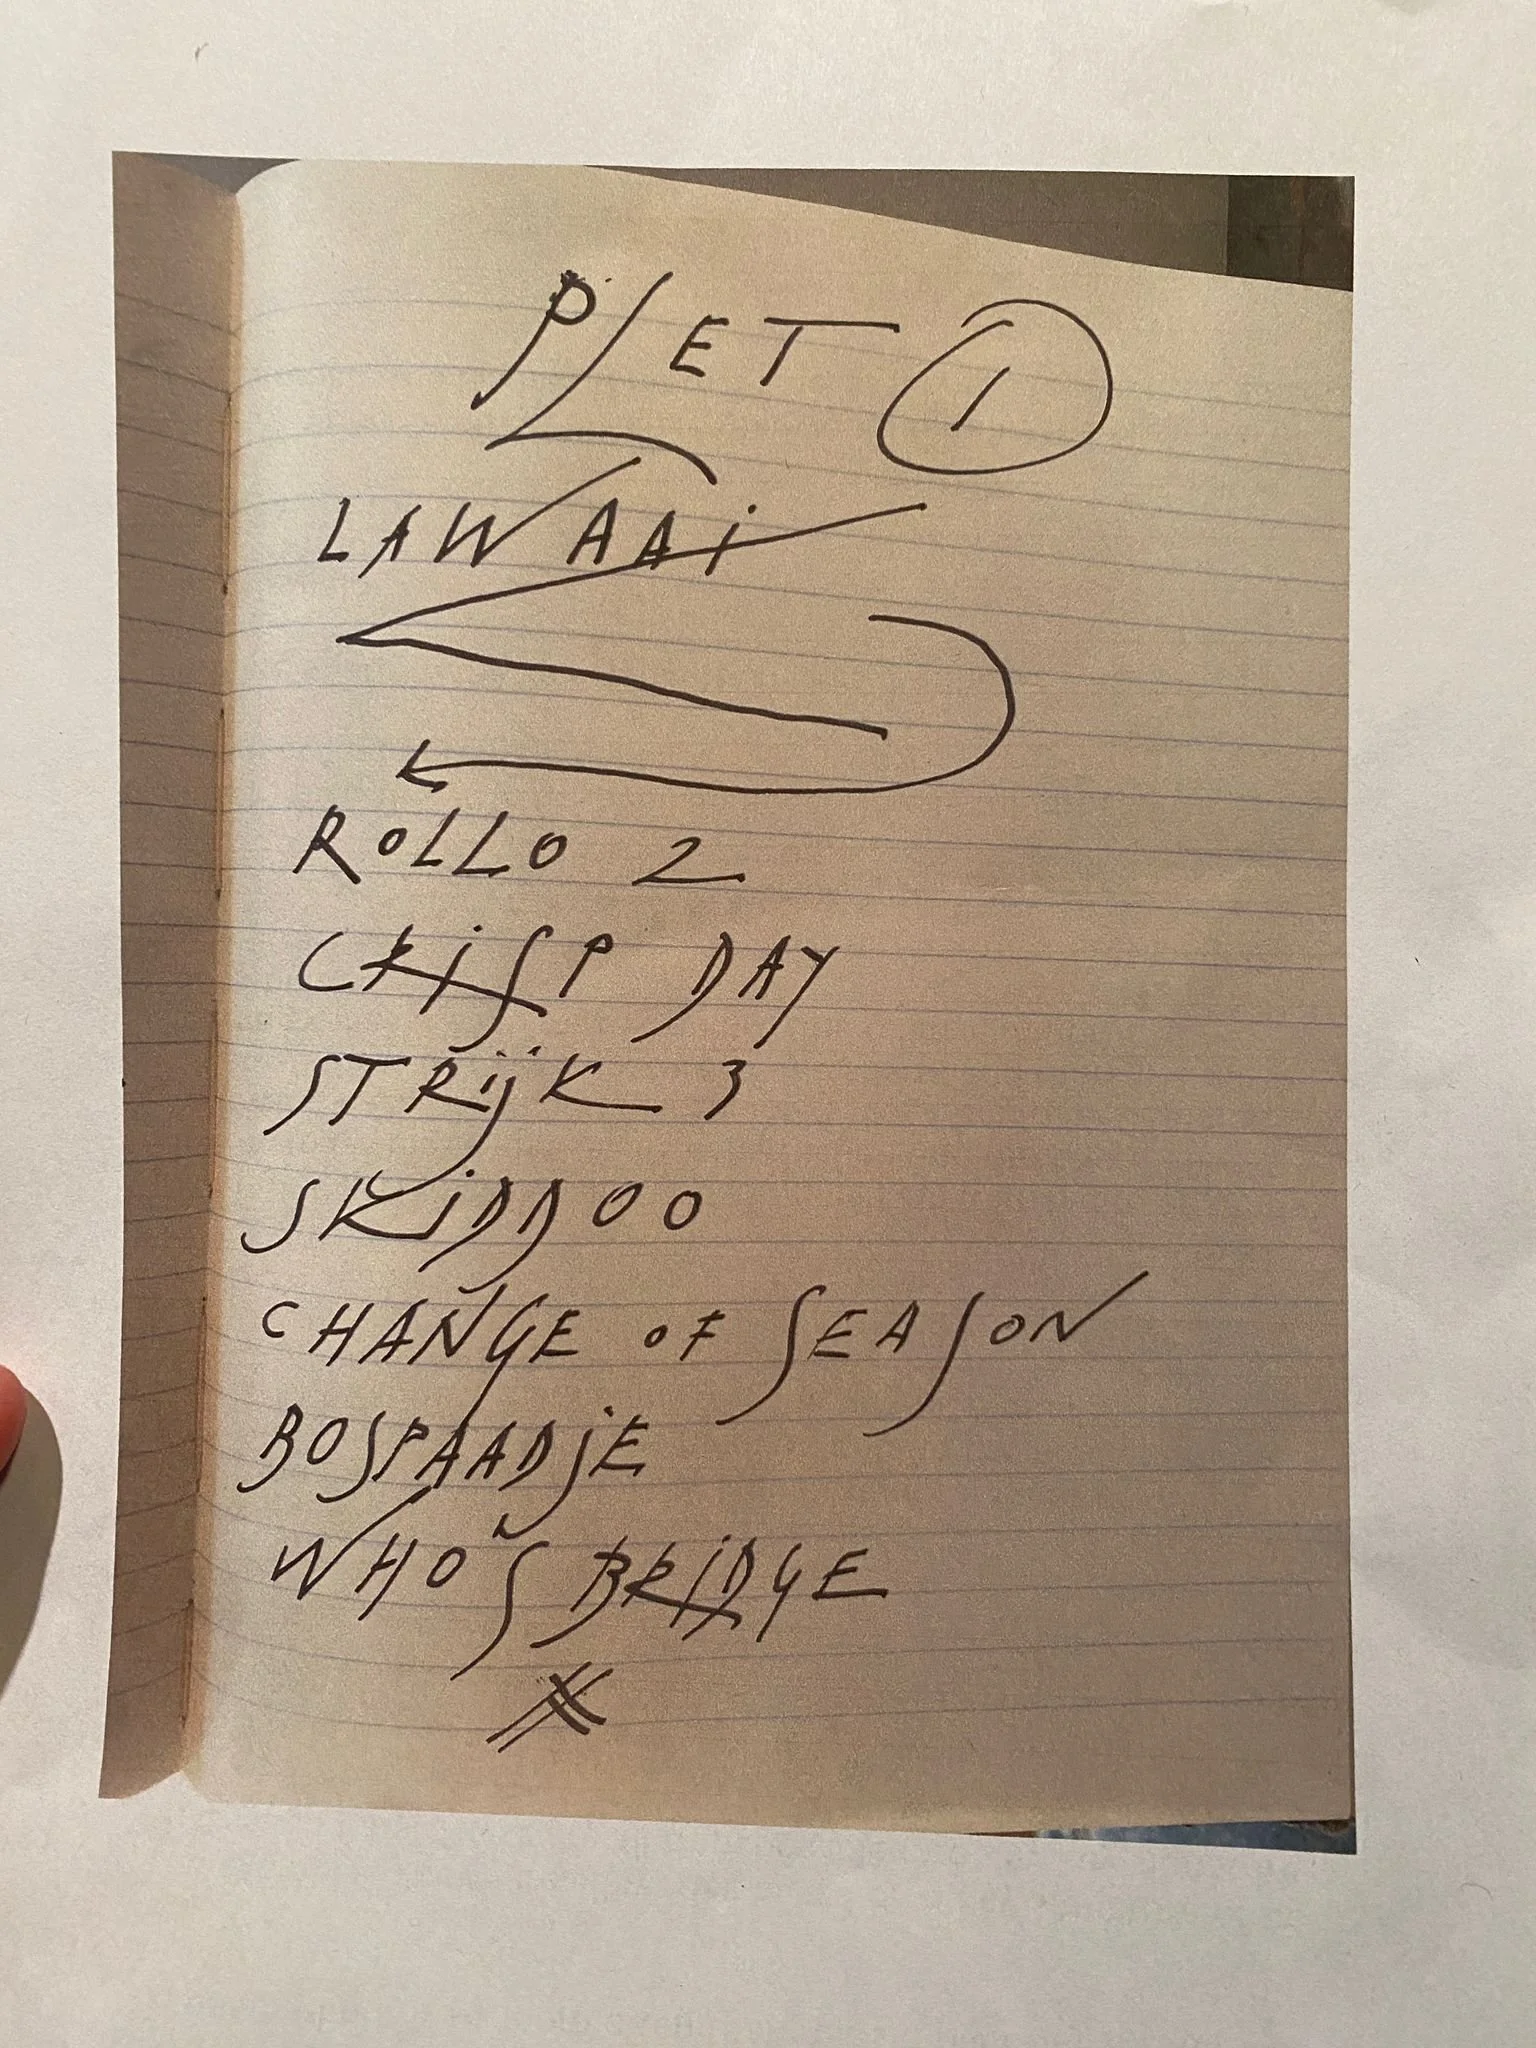 PLET 1
LAWAAi
ROLLO 2
CRiSP DAY
STRijK 3
SKiDDOO
CHANGE OF SEASON
BOSPAADjE
WHO'S BRiDGE